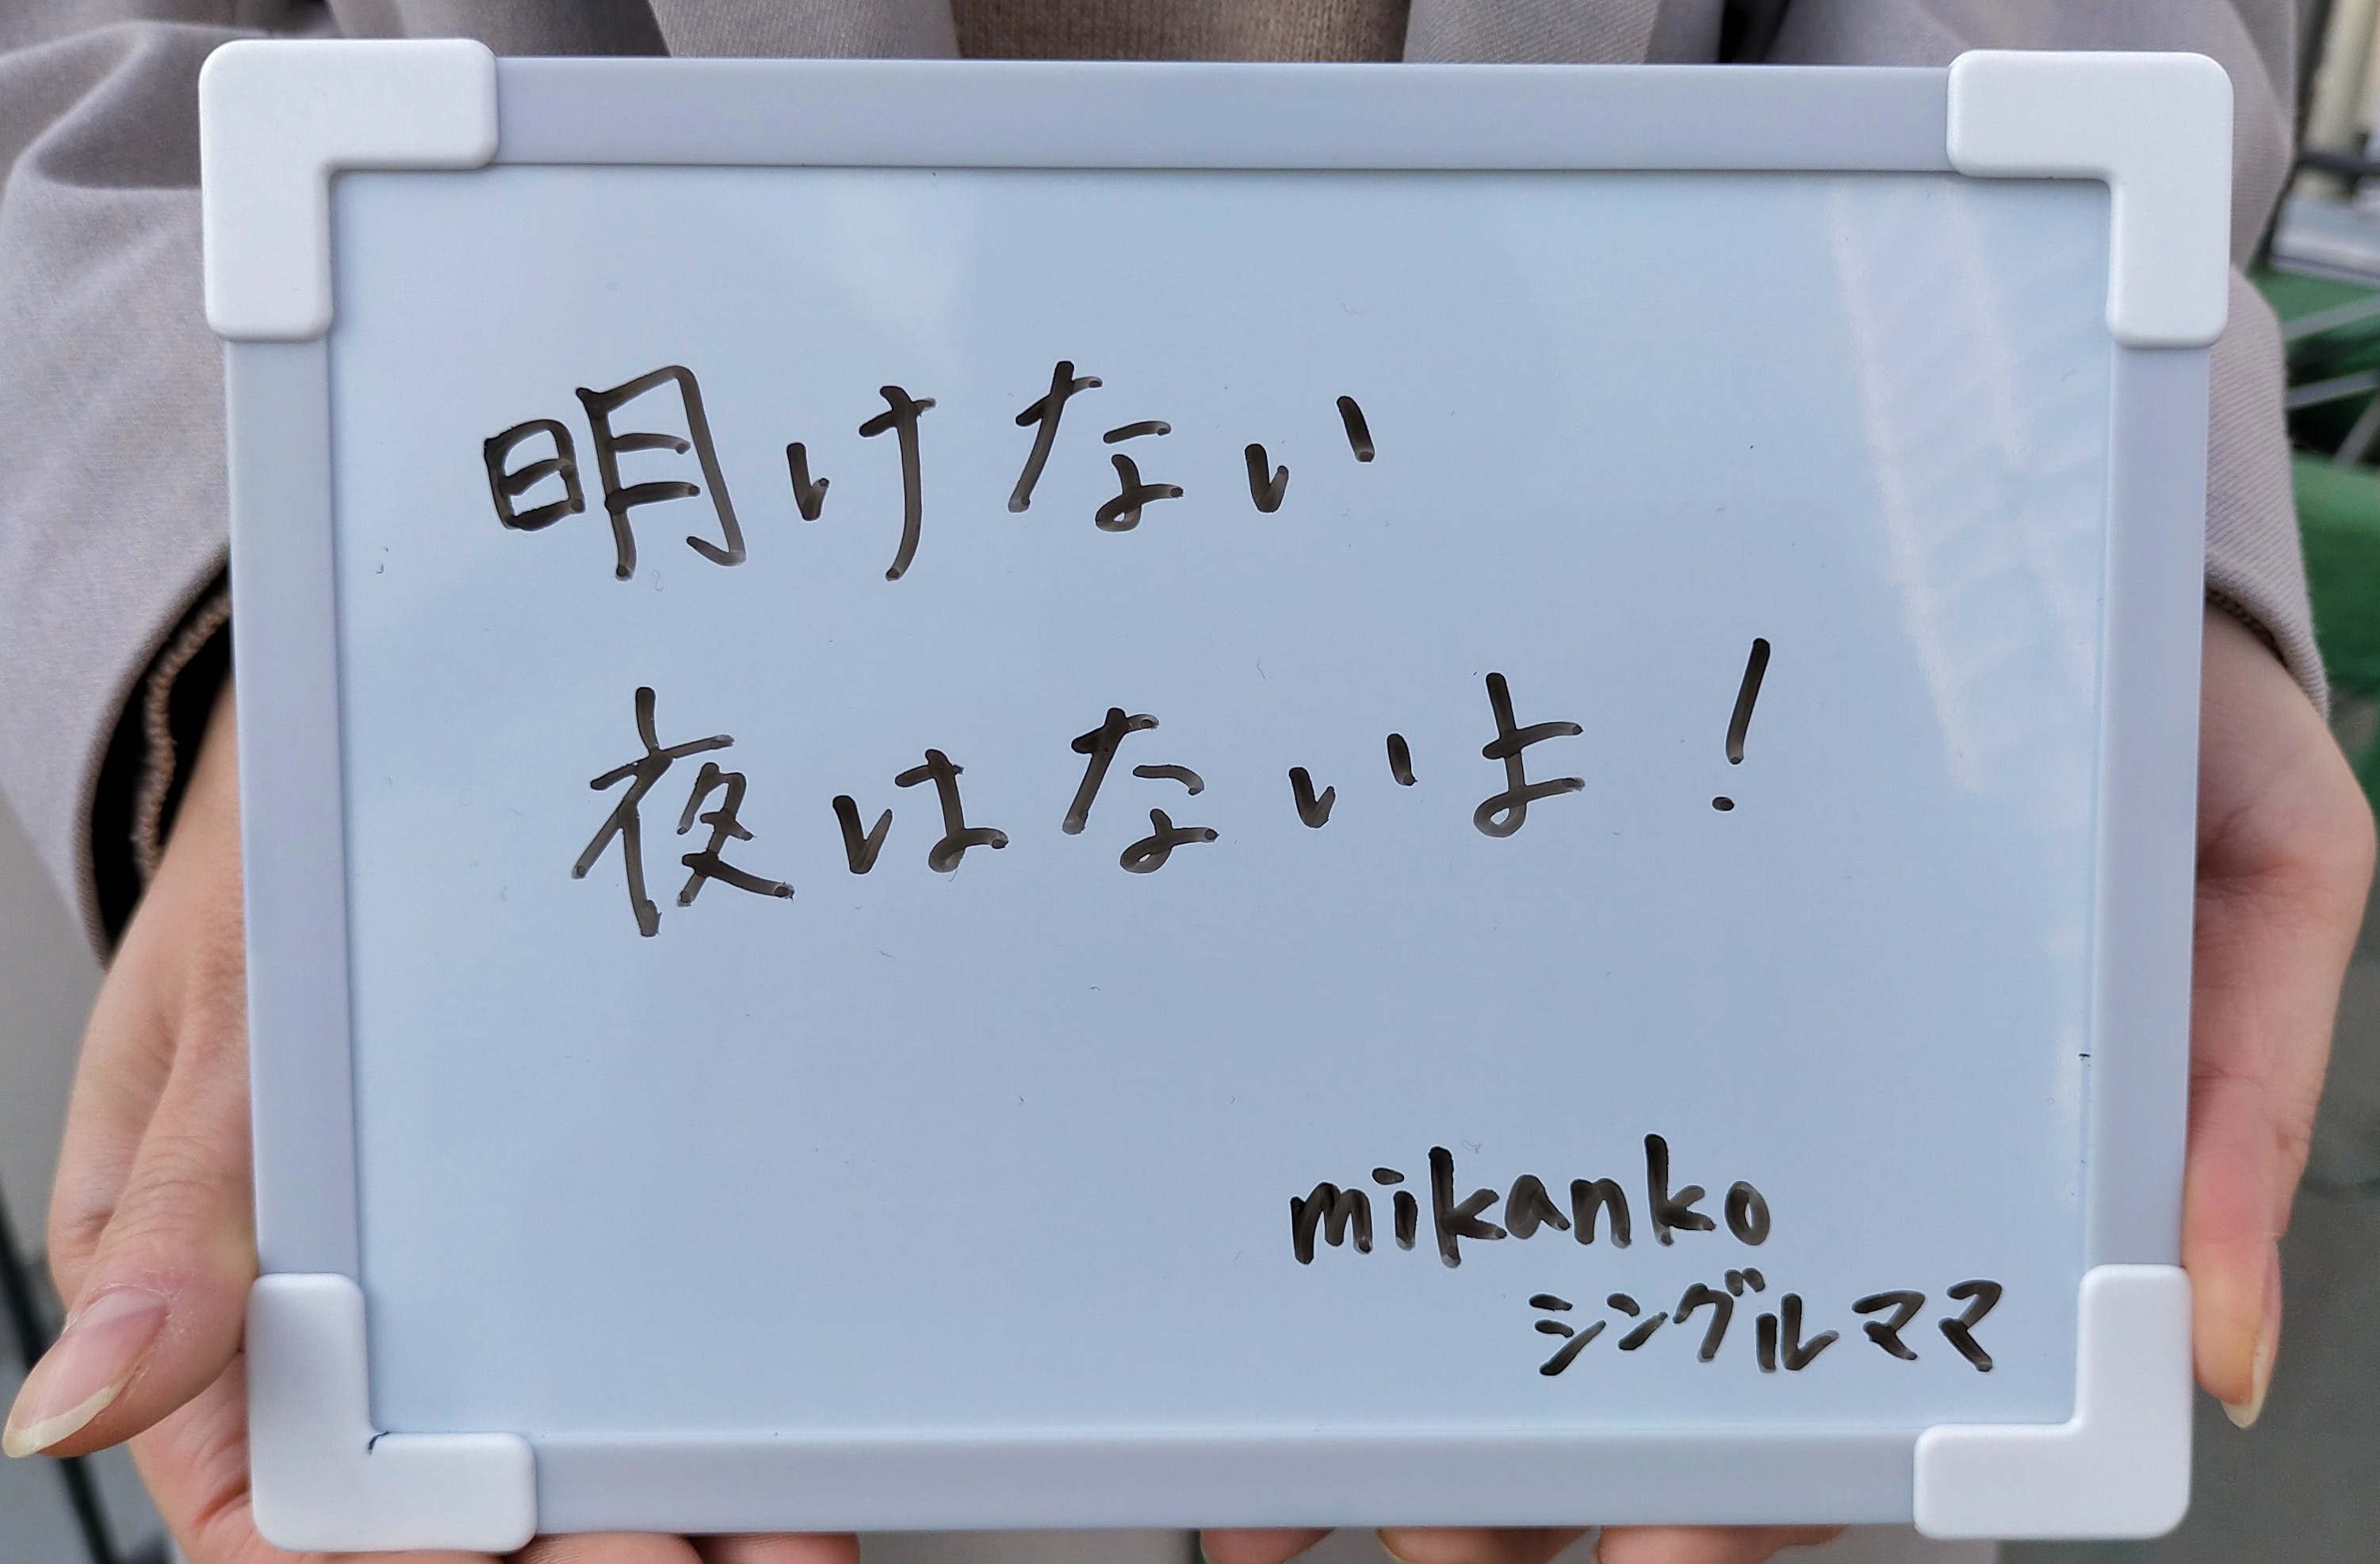 明けない
夜はないよ!
mikanko
シングルママ